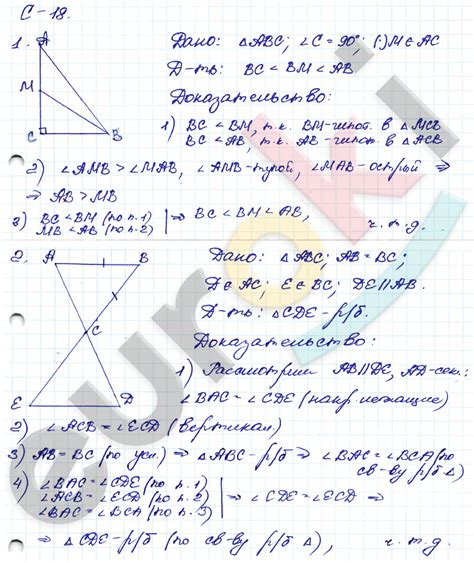 С-18.
1.
A
M
C
B
Дано: △ABC; ∠C = 90°; (·)M ∈ AC
Д-ть: BC < BM < AB
Доказательство:
1) BC < BM, т.к. BM-гипот. в △MCB
BC < AB, т.к. AB-гипот. в △ACB
2) ∠AMB > ∠MAB, ∠AMB-тупой, ∠MAB-острый ⇒
⇒ AB > MB
3) BC < BM (по п.1)
MB < AB (по п.2) ⇒ BC < BM < AB, ч.т.д.
2.
A
B
C
E
D
Дано: △ABC; AB = BC;
D ∈ AC; E ∈ BC; DE || AB.
Д-ть: △CDE - р/б.
Доказательство:
1) Рассмотрим AB || DE, AD-сек.:
∠BAC = ∠CDE (накр. лежащие)
2) ∠ACB = ∠ECD (вертикал.)
3) AB = BC (по усл.) ⇒ △ABC - р/б ⇒ ∠BAC = ∠BCA (по
св-ву р/б △)
4) ∠BAC = ∠CDE (по п.1)
∠ACB = ∠ECD (по п.2)
∠BAC = ∠BCA (по п.3) ⇒ ∠CDE = ∠ECD ⇒
⇒ △CDE - р/б (по св-ву р/б △), ч.т.д.
euroki